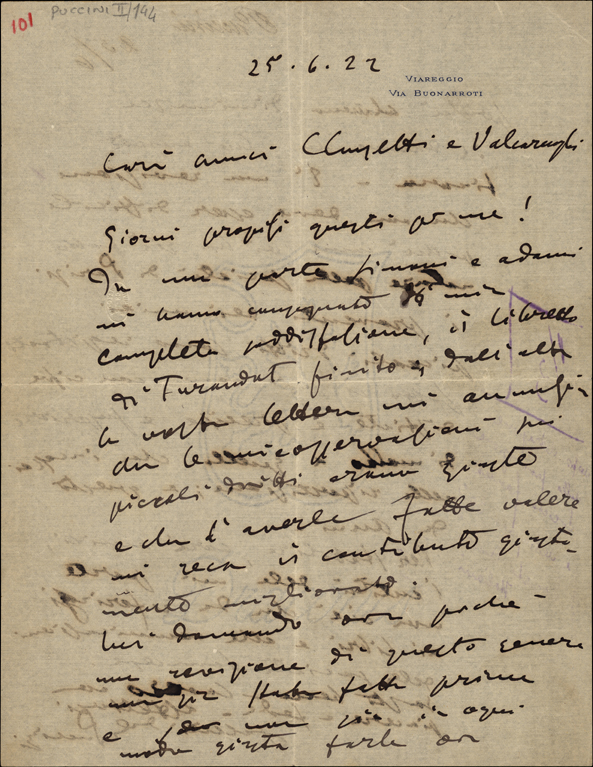 101
PUCCINI II/144
25.6.22
VIAREGGIO
VIA BUONARROTI
Cari amici Clausetti e Valcarenghi
Giorni propizi questi per me!
Da una parte Simoni e Adami
mi hanno consegnato con mia
completa soddisfazione, il libretto
di Turandot finito e dall'altra
la vostra lettera mi annunzia
che le mie osservazioni sui
piccoli diritti erano giuste
e che l'averle fatte valere
mi reca il contributo giusta-
mente migliorato.
Mi domando ora perchè
una revisione di questo genere
non sia stata fatta prima
e se non sia in ogni
modo giusto farla ora